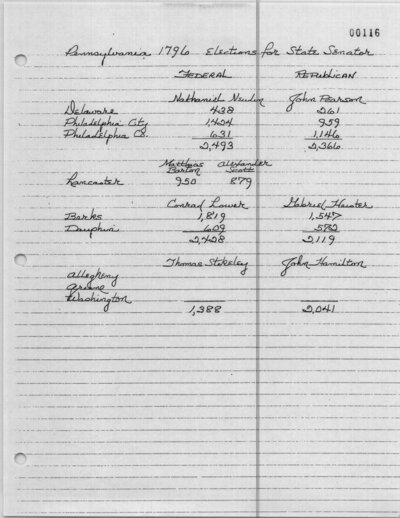 00116
Pennsylvania 1796 Elections for State Senator
FEDERAL REPUBLICAN
Nathaniel Newlin John Pearson
Delaware 438 261
Philadelphia City 1,424 959
Philadelphia Co. 631 1,146
2,493 2,366
Matthias Barton Alexander Scott
Lancaster 950 879
Conrad Lower Gabriel Hiester
Berks 1,819 1,547
Dauphin 609 572
2,428 2,119
Thomas Stokeley John Hamilton
Allegheny
Greene
Washington
1,388 2,041